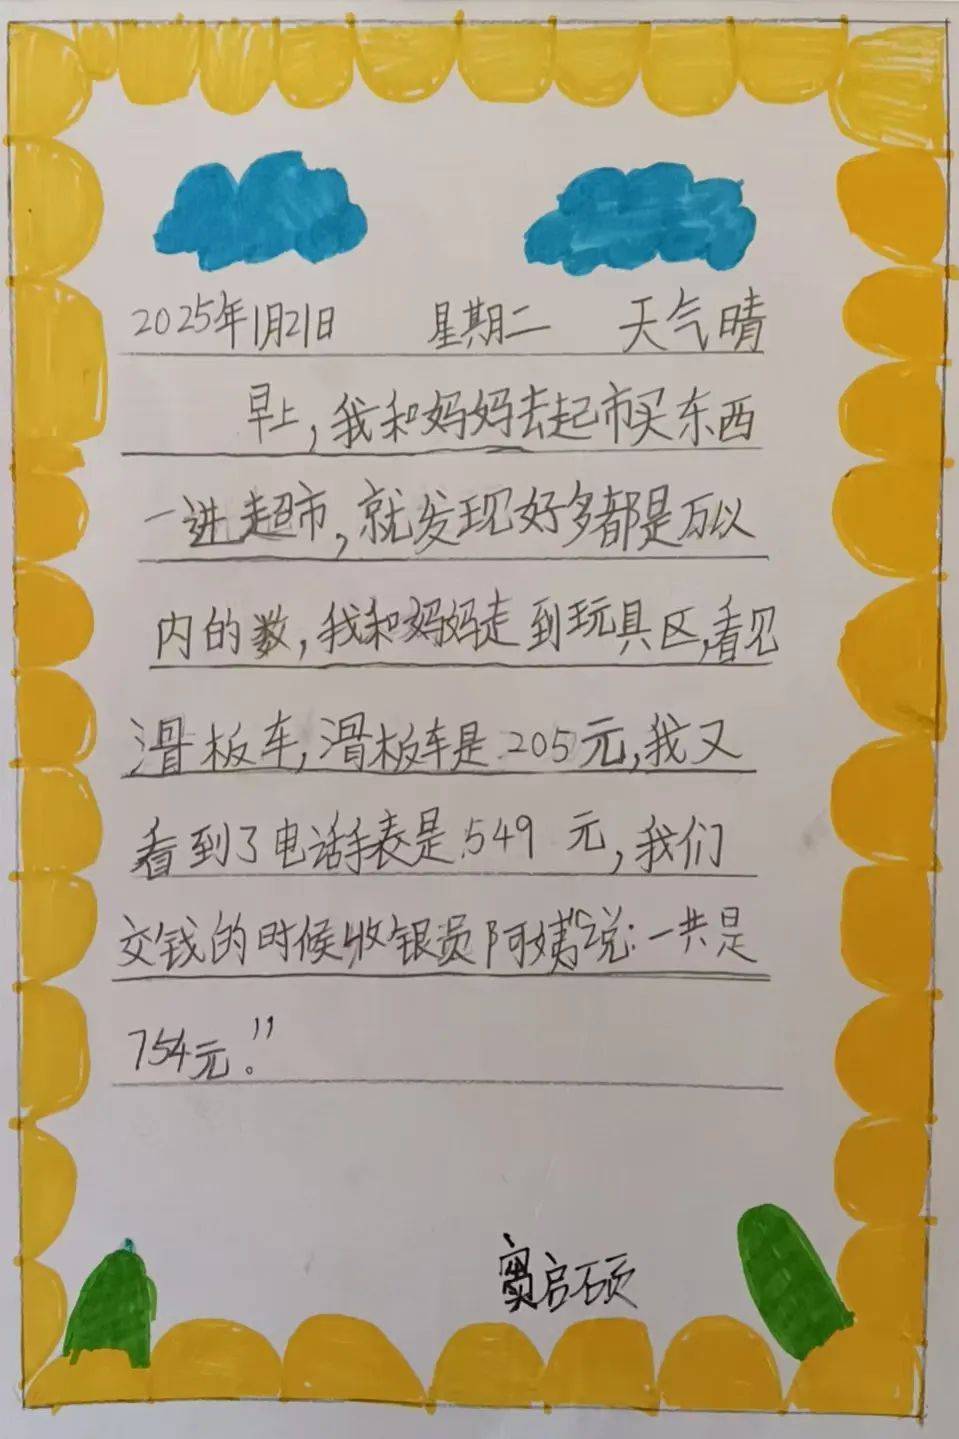 2025年1月21日 星期二 天气晴
早上，我和妈妈去起市买东西
一进超市，就发现好多都是万以
内的数，我和妈妈走到玩具区，看见
滑板车，滑板车是205元，我又
看到了电话手表是549元，我们
交钱的时候收银员阿姨“说：一共是
754元。”
窦启硕